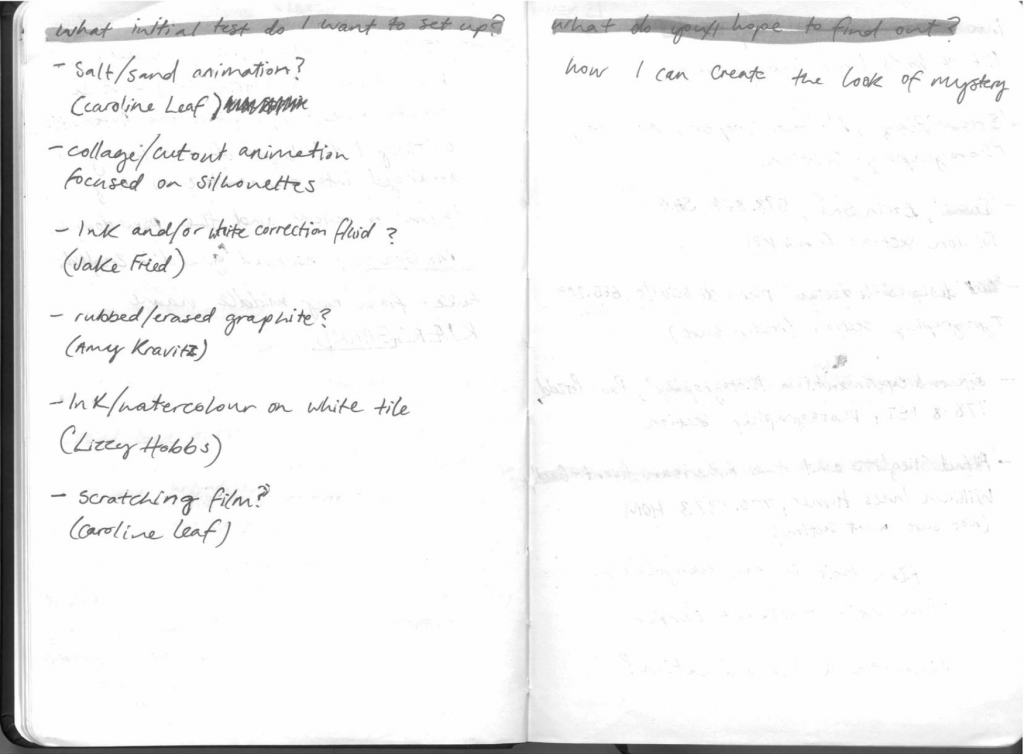 What initial test do I want to set up?
- Salt/sand animation?
(Caroline Leaf)
- collage/cutout animation
focused on silhouettes
- Ink and/or white correction fluid?
(Jake Fried)
- rubbed/erased graphite?
(Amy Kravitz)
- Ink/watercolour on white tile
(Lizzy Hobbs)
- scratching film?
(Caroline Leaf)
What do you/I hope to find out?
how I can create the look of mystery